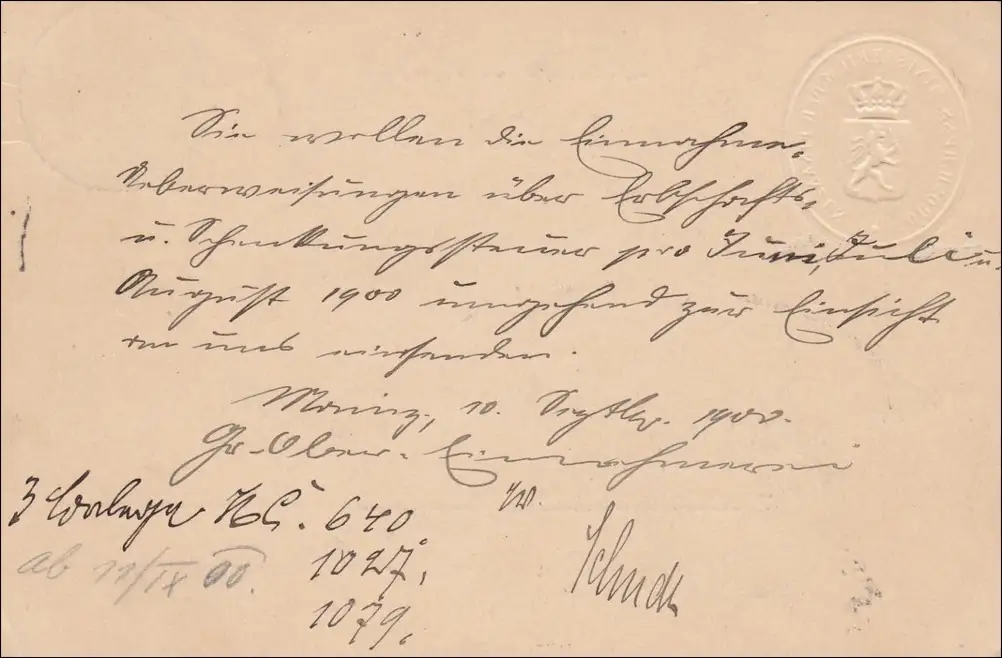 Sie wollen die Einnahme-
Ueberweisungen über Erbschafts-
u. Schenkungssteuer pro Juni, Juli u.
August 1900 umgehend zur Einsicht
an uns einsenden.
Mainz, 10. Septbr. 1900.
Gr. Ober-Einnehmerei
3 640
ab 11/IX 00. 1027.
1079.